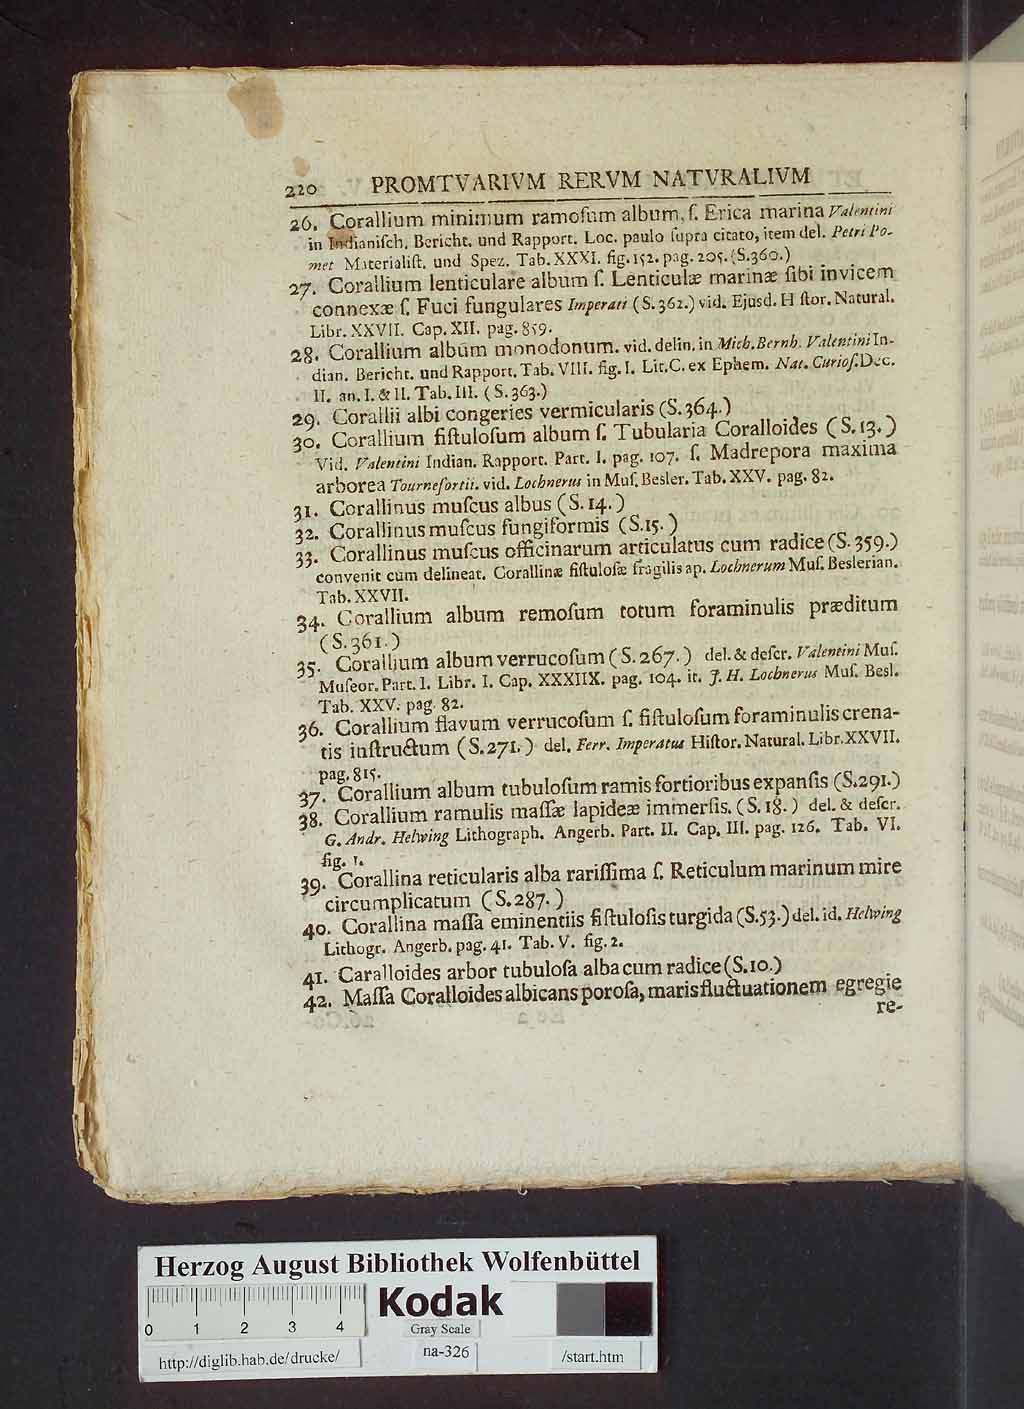 220 PROMTVARIVM RERVM NATVRALIVM
26. Corallium minimum ramoſum album, ſ. Erica marina Valentini
in Indianiſch. Bericht. und Rapport. Loc. paulo ſupra citato, item del. Petri Po-
met Materialiſt. und Spez. Tab. XXXI. fig. 152. pag. 205. (S.360.)
27. Corallium lenticulare album ſ. Lenticulæ marinæ ſibi invicem
connexæ ſ. Fuci fungulares Imperati (S. 362.) vid. Ejusd. H ſtor. Natural.
Libr. XXVII. Cap. XII. pag. 859.
28. Corallium album monodonum. vid. delin. in Mich. Bernh. Valentini In-
dian. Bericht. und Rapport. Tab. VIII. fig. I. Lit. C. ex Ephem. Nat. Curioſ. Dec.
II. an. I. & II. Tab. III. (S. 363.)
29. Corallii albi congeries vermicularis (S. 364.)
30. Corallium fiſtuloſum album ſ. Tubularia Coralloides (S. 13.)
Vid. Valentini Indian. Rapport. Part. I. pag. 107. ſ. Madrepora maxima
arborea Tournefortii. vid. Lochnerus in Muſ. Besler. Tab. XXV. pag. 82.
31. Corallinus muſcus albus (S. 14.)
32. Corallinus muſcus fungiformis (S. 15.)
33. Corallinus muſcus officinarum articulatus cum radice (S. 359.)
convenit cum delineat. Corallinæ fiſtuloſæ fragilis ap. Lochnerum Muſ. Beslerian.
Tab. XXVII.
34. Corallium album remoſum totum foraminulis præditum
(S. 361.)
35. Corallium album verrucoſum (S. 267.) del. & deſcr. Valentini Muſ.
Muſeor. Part. I. Libr. I. Cap. XXXIIX. pag. 104. it. J. H. Lochnerus Muſ. Besl.
Tab. XXV. pag. 82.
36. Corallium flavum verrucoſum ſ. fiſtuloſum foraminulis crena-
tis inſtructum (S. 271.) del. Ferr. Imperatus Hiſtor. Natural. Libr. XXVII.
pag. 815.
37. Corallium album tubuloſum ramis fortioribus expanſis (S. 291.)
38. Corallium ramulis maſſæ lapideæ immerſis. (S. 18.) del. & deſcr.
G. Andr. Helwing Lithograph. Angerb. Part. II. Cap. III. pag. 126. Tab. VI.
fig. 1.
39. Corallina reticularis alba rariſſima ſ. Reticulum marinum mire
circumplicatum (S. 287.)
40. Corallina maſſa eminentiis fiſtuloſis turgida (S. 53.) del. id. Helwing
Lithogr. Angerb. pag. 41. Tab. V. fig. 2.
41. Caralloides arbor tubuloſa alba cum radice (S. 10.)
42. Maſſa Coralloides albicans poroſa, maris fluctuationem egregie
re-
Herzog August Bibliothek Wolfenbüttel
0 1 2 3 4
Kodak
Gray Scale
http://diglib.hab.de/drucke/ na-326 /start.htm